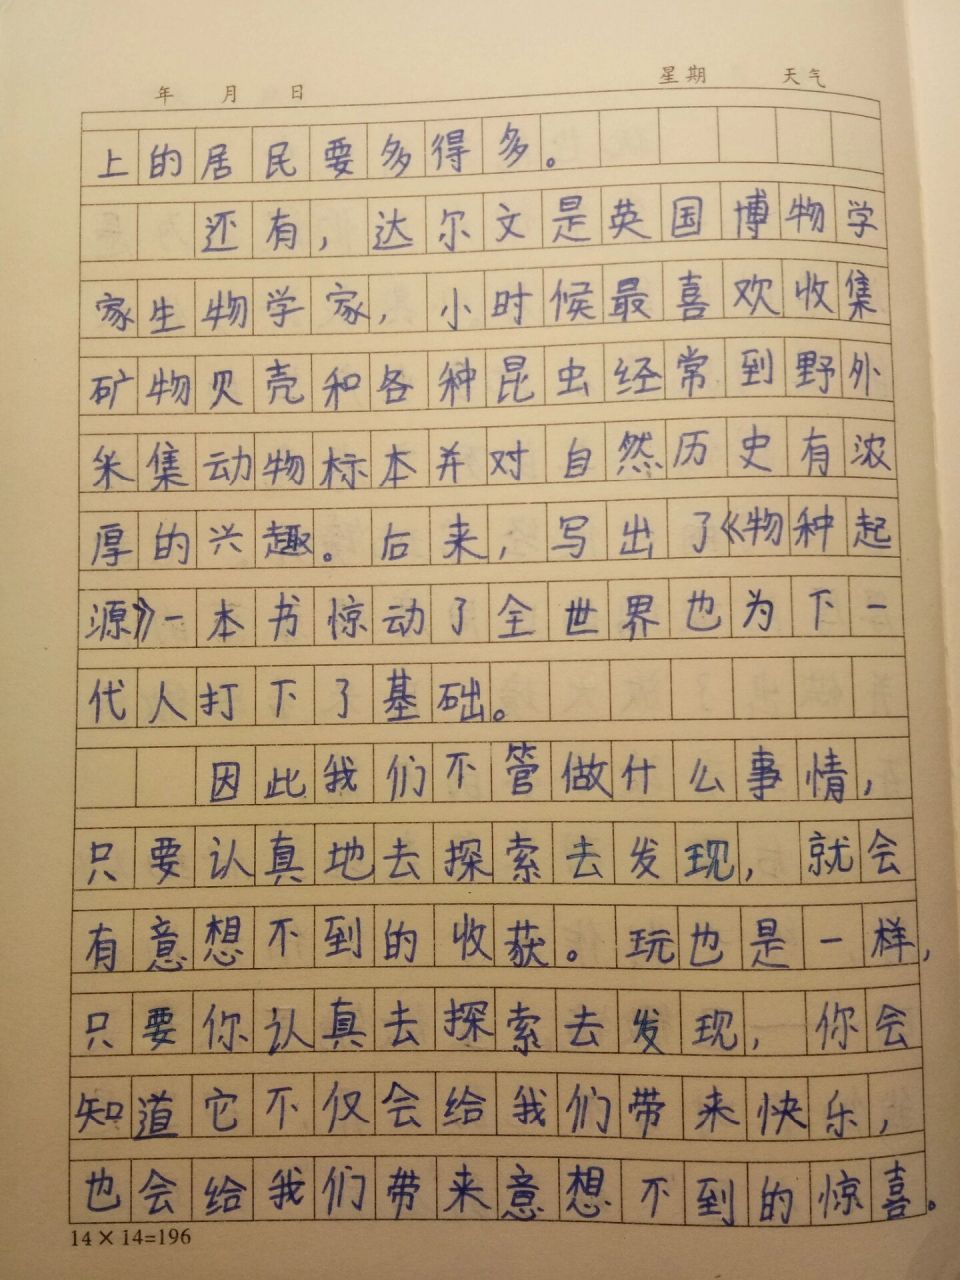 年 月 日 星期 天气
上的居民要多得多。
还有，达尔文是英国博物学
家生物学家，小时候最喜欢收集
矿物贝壳和各种昆虫经常到野外
采集动物标本并对自然历史有浓
厚的兴趣。后来，写出了《物种起
源》一本书惊动了全世界也为下一
代人打下了基础。
因此我们不管做什么事情，
只要认真地去探索去发现，就会
有意想不到的收获。玩也是一样，
只要你认真去探索去发现，你会
知道它不仅会给我们带来快乐，
也会给我们带来意想不到的惊喜。
14×14=196